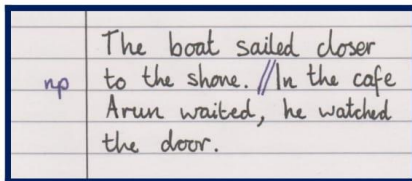 The boat sailed closer
np to the shore. // In the cafe
Arun waited, he watched
the door.